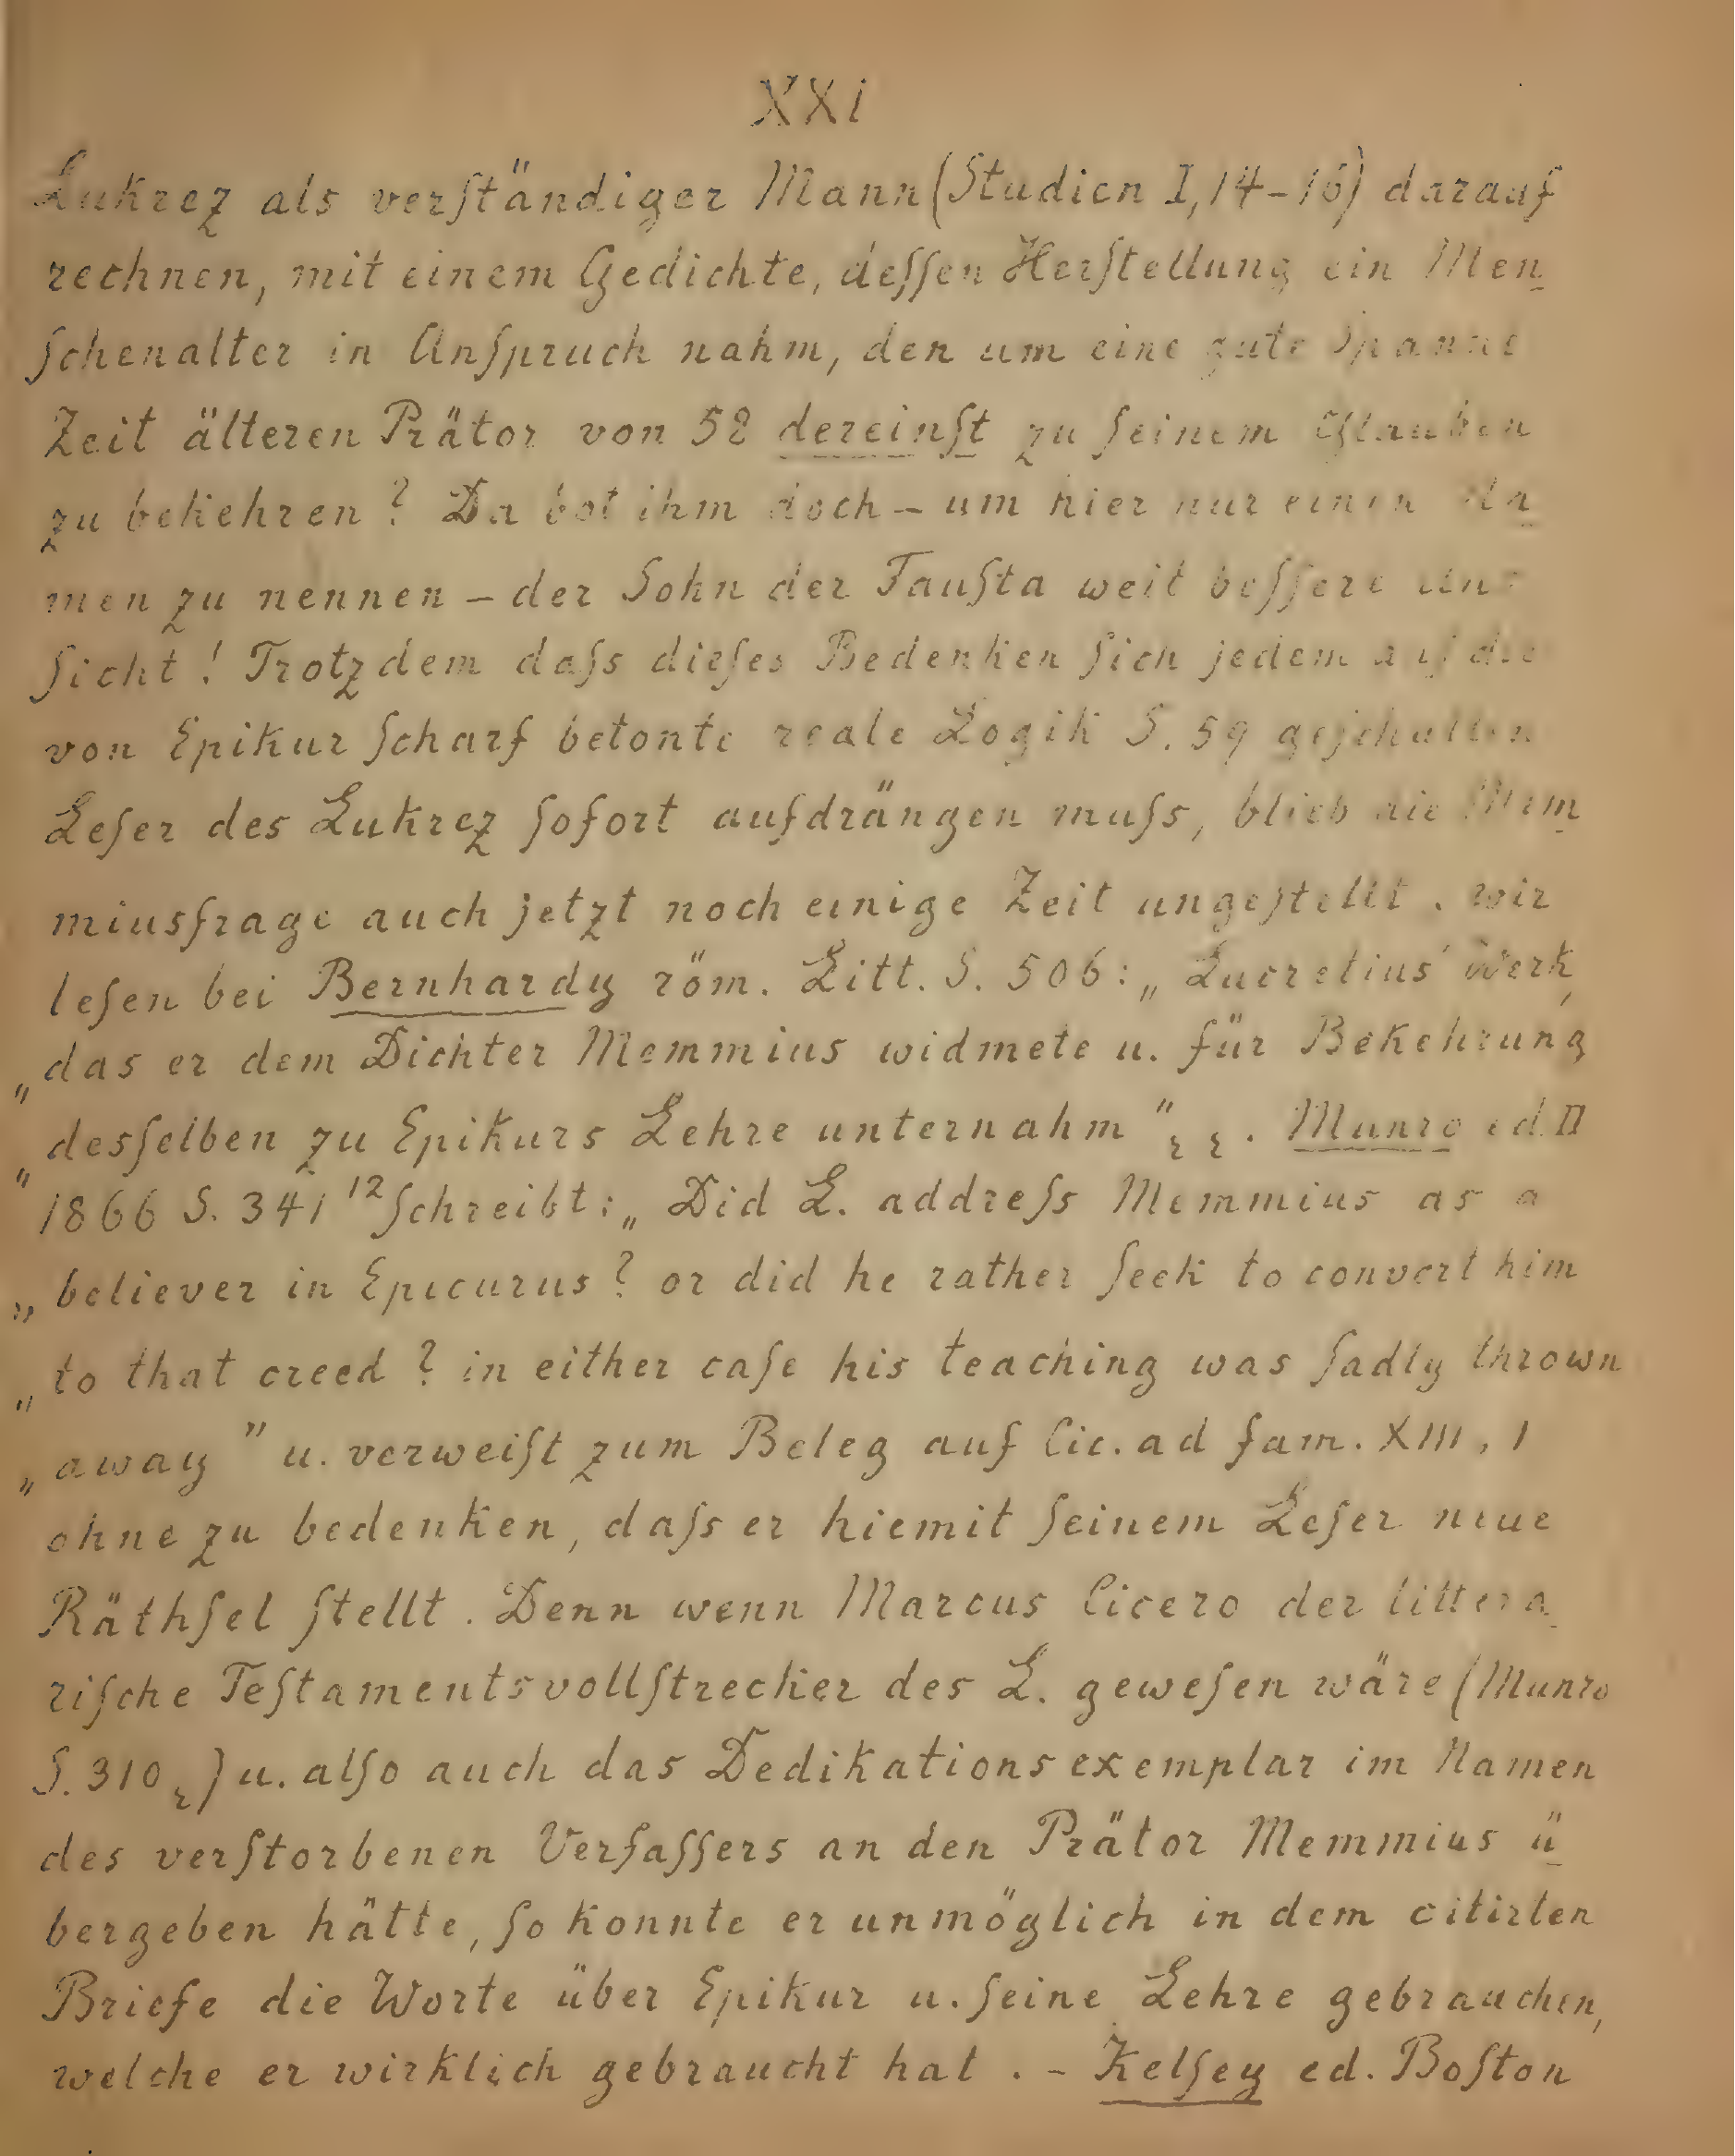 XXI
Lukrez als verſtändiger Mann (Studien I, 14-16) darauf
rechnen, mit einem Gedichte, deſſen Herſtellung ein Men-
ſchenalter in Anſpruch nahm, den um eine gute Spanne
Zeit älteren Prätor von 58 dereinſt zu ſeinem Glauben
zu bekehren? Da bot ihm doch – um hier nur einen Na-
men zu nennen – der Sohn der Fauſta weit beſſere Aus-
ſicht! Trotzdem daſs dieſes Bedenken ſich jedem auf die
von Epikur ſcharf betonte reale Logik S. 59 geſchulten
Leſer des Lukrez ſofort aufdrängen muſs, blieb die Mem-
miusfrage auch jetzt noch einige Zeit ungeſtellt. Wir
leſen bei Bernhardy röm. Litt. S. 506: „Lucretius' Werk,
„das er dem Dichter Memmius widmete u. für Bekehrung
„desſelben zu Epikurs Lehre unternahm" ꝛ ꝛ. Munro ed. II
1866 S. 341 ¹² ſchreibt: „Did L. addreſs Memmius as a
„believer in Epicurus? or did he rather ſeek to convert him
„to that creed? in either caſe his teaching was ſadly thrown
„away" u. verweiſt zum Beleg auf Cic. ad fam. XIII, 1
ohne zu bedenken, daſs er hiemit ſeinem Leſer neue
Räthſel ſtellt. Denn wenn Marcus Cicero der littera-
riſche Teſtamentsvollſtrecker des L. geweſen wäre (Munro
S. 310 ꝛ) u. alſo auch das Dedikationsexemplar im Namen
des verſtorbenen Verfaſſers an den Prätor Memmius ü-
bergeben hätte, ſo konnte er unmöglich in dem citirten
Briefe die Worte über Epikur u. ſeine Lehre gebrauchen,
welche er wirklich gebraucht hat. – Kelſey ed. Boſton